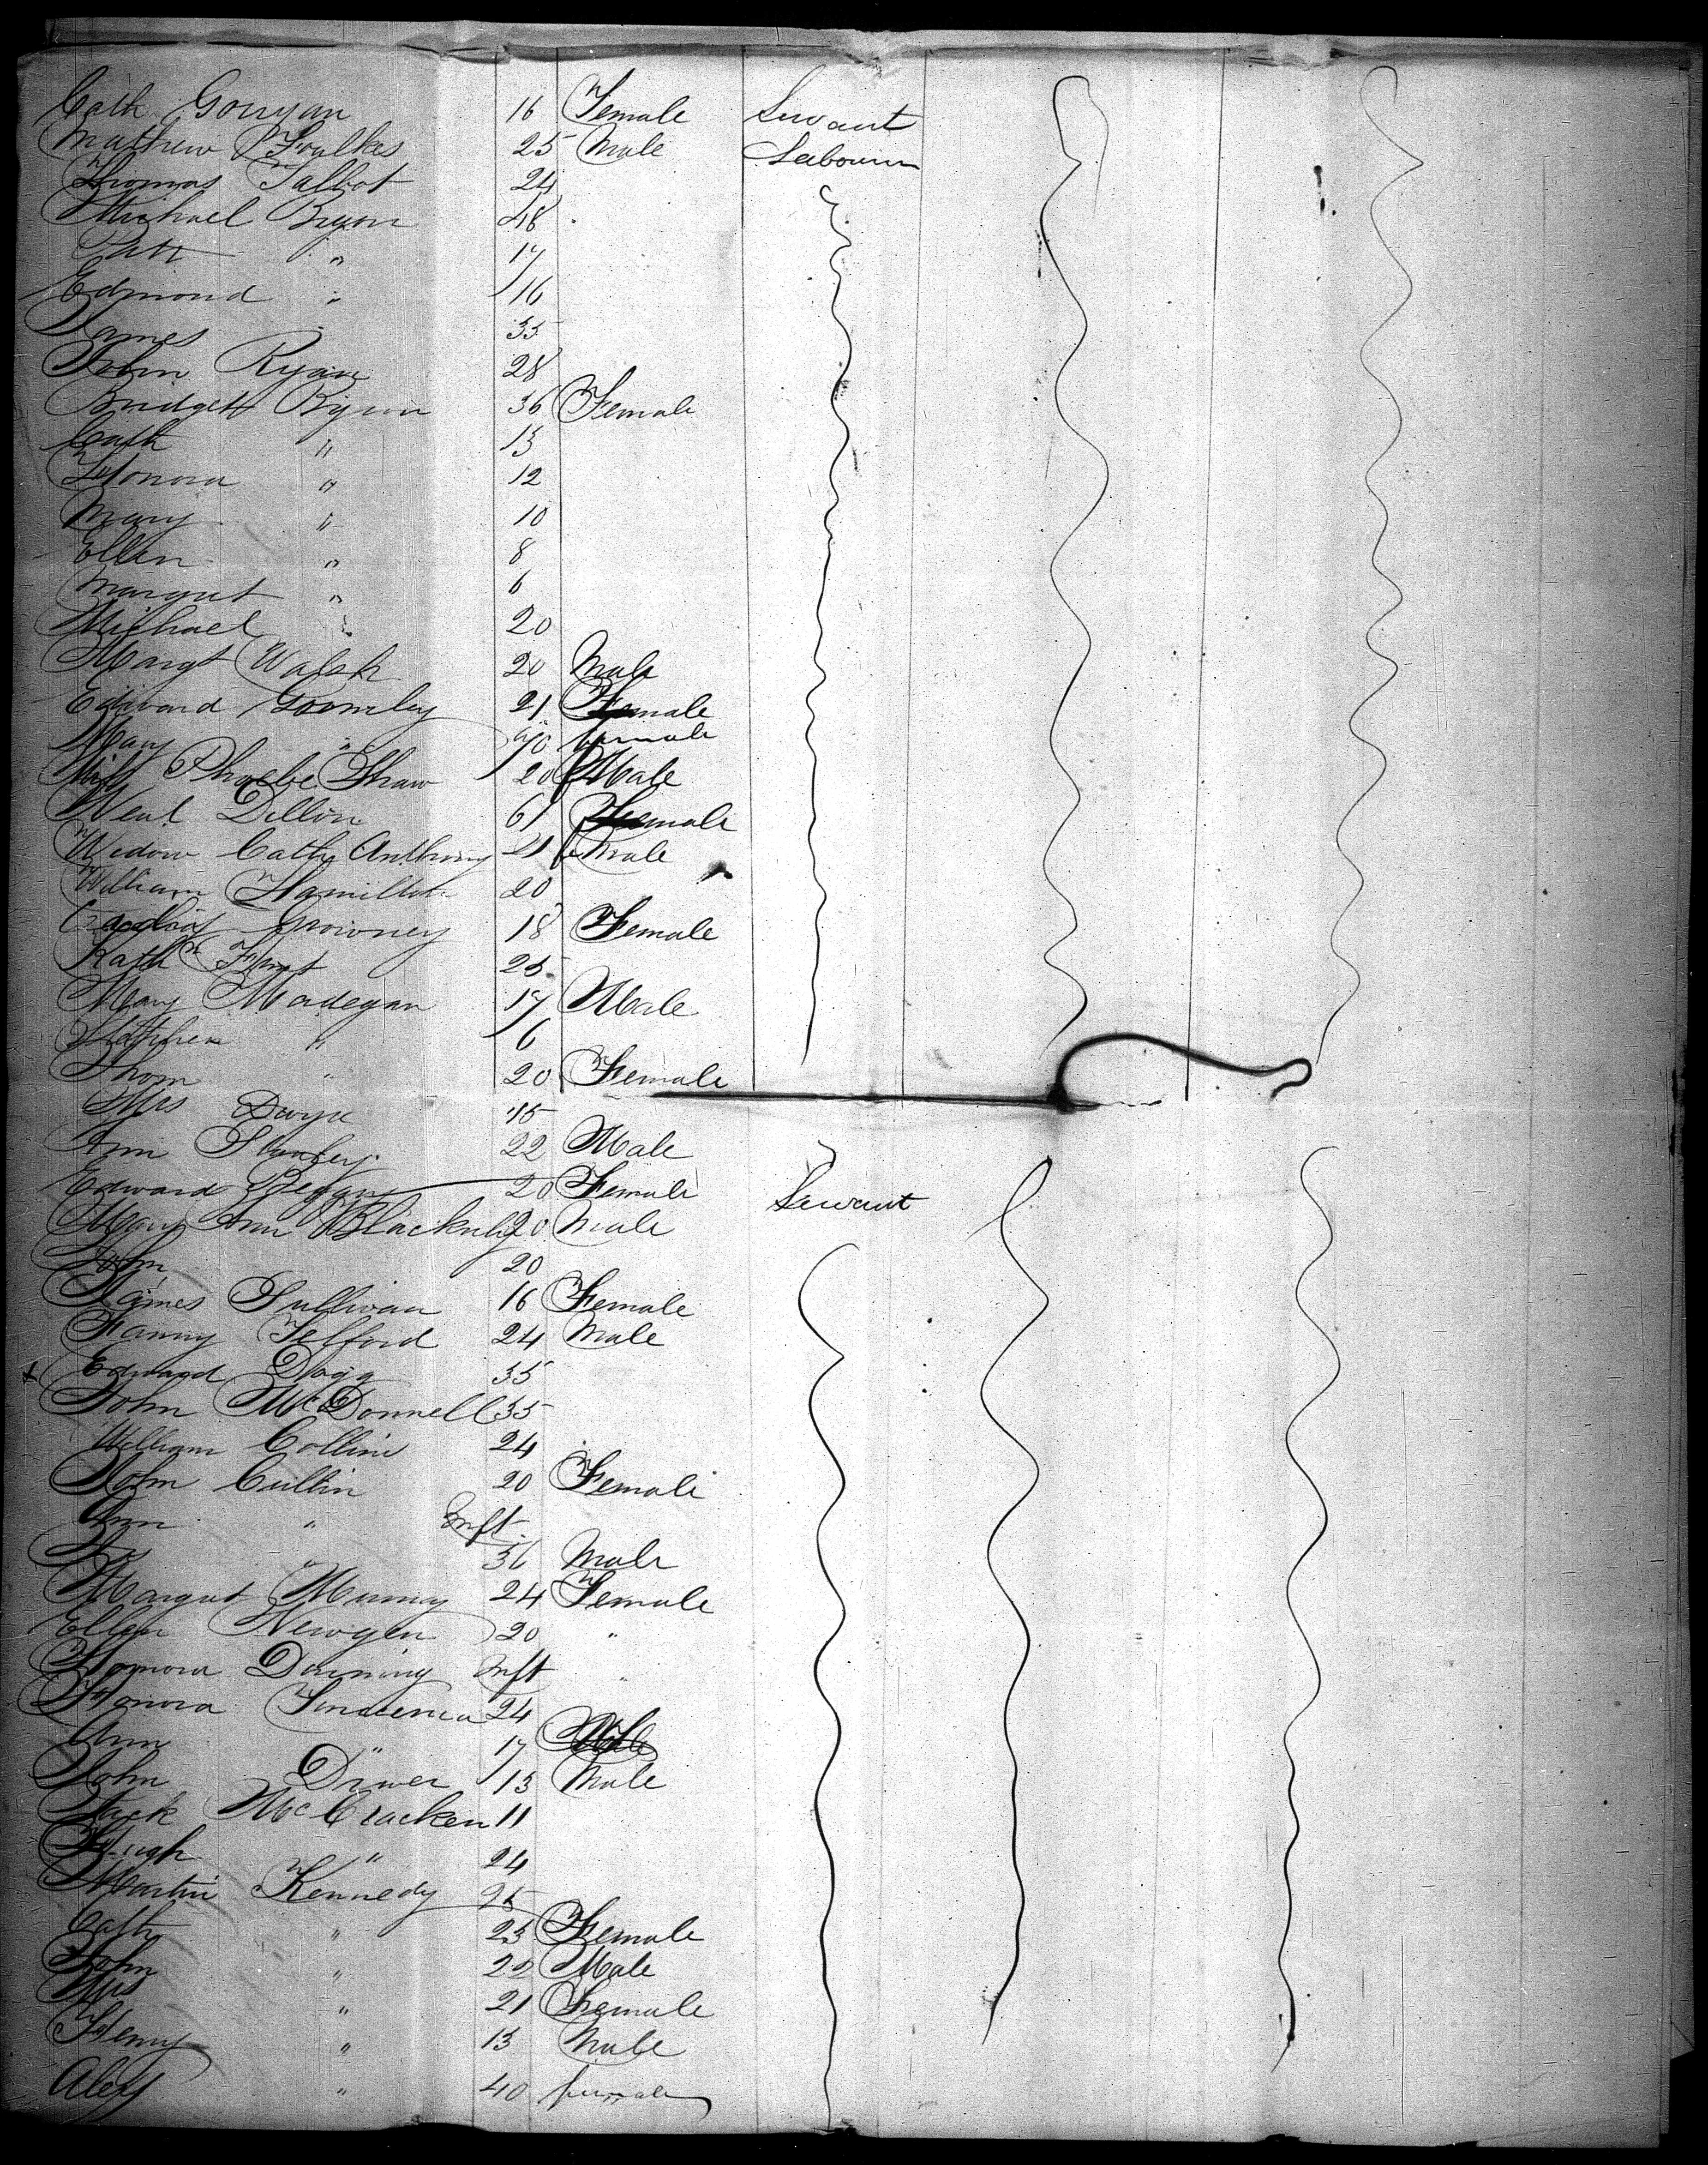 Cath Gouyan 16 Female Servant
Mathew Foulkes 25 Male Labourer
Thomas Talbot 24
Michael Bryan 48
Patt " 17
Edmond " 16
James " 35
John Ryan 28
Bridgett Bryan 36 Female
Cath " 13
Honora " 12
Mary " 10
Ellen " 8
Margret " 6
Michael " 20
Margt Walsh 20 Male
Edward Gormley 21 Female
Mary " female
Miss Phoebe Shaw 20 Male
Neal Dillon 61 Female
Widow Cath Anthony 21 Male
William Hamilton 20
Growney 18 Female
Kath 25
Mary Madegan 17 Male
" 6
Thom " 20 Female
Mrs Dwyer
Ann 22 Male
Edward 20 Female Servant
Mary Ann 20 Male
John 20
James Sullivan 16 Female
Fanny Telford 24 Male
x Edward 35
John McDonnell 35
William Collins 24
John Cullin 20 Female
Ann " Inft
" 36 Male
Margret Murray 24 Female
Ellen Newgen 20 "
Honora Inft "
Honora 24
Ann " 17
John Driver 13 Male
Jack McCracken 11
Hugh " 24
Martin Kennedy 25
Cath " 23 Female
John " 22 Male
Mrs " 21 Female
Henry " 13 Male
Alexr " 40 female